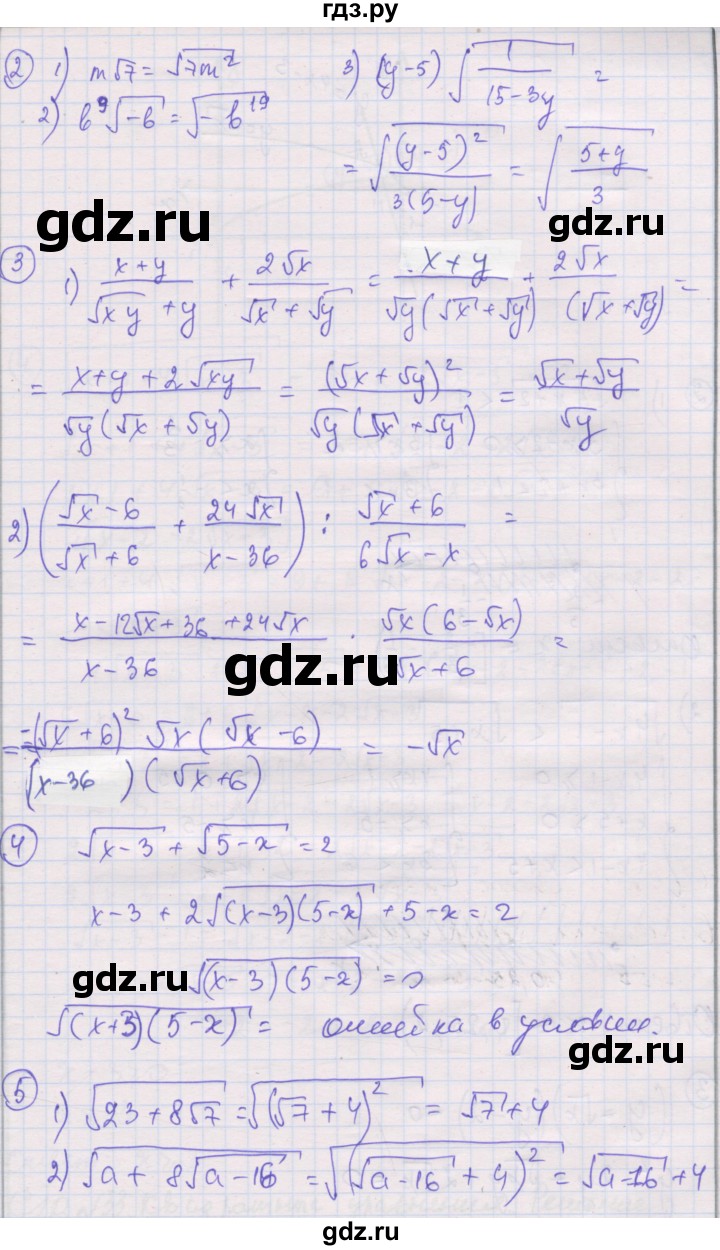 гдз.ру
② 1) m√7 = √(7m²)
3) (y-5) √(1/(15-3y)) =
2) b⁹√(-b) = √(-b¹⁹)
= √((y-5)²/(3(5-y))) = √((5+y)/3)
gdz.ru
gdz.ru
③ 1) (x+y)/(√(xy)+y) + 2√x/(√x+√y) = (x+y)/(√y(√x+√y)) + 2√x/(√x+√y) =
= (x+y+2√(xy))/(√y(√x+√y)) = (√x+√y)²/(√y(√x+√y)) = (√x+√y)/√y
2) ((√x-6)/(√x+6) + 24√x/(x-36)) : (√x+6)/(6√x-x) =
= (x-12√x+36+24√x)/(x-36) · √x(6-√x)/(√x+6) =
gdz.ru
= -(√x+6)²√x(√x-6)/((x-36)(√x+6)) = -√x
④ √(x-3) + √(5-x) = 2
x-3 + 2√((x-3)(5-x)) + 5-x = 2
gdz.ru
√((x-3)(5-x)) = 0
√((x+3)(5-x)) = ошибка в условии.
gdz.ru
⑤ 1) √(23+8√7) = √((√7+4)²) = √7+4
2) √(a+8√(a-16)) = √((√(a-16)+4)²) = √(a-16)+4
gdz.ru